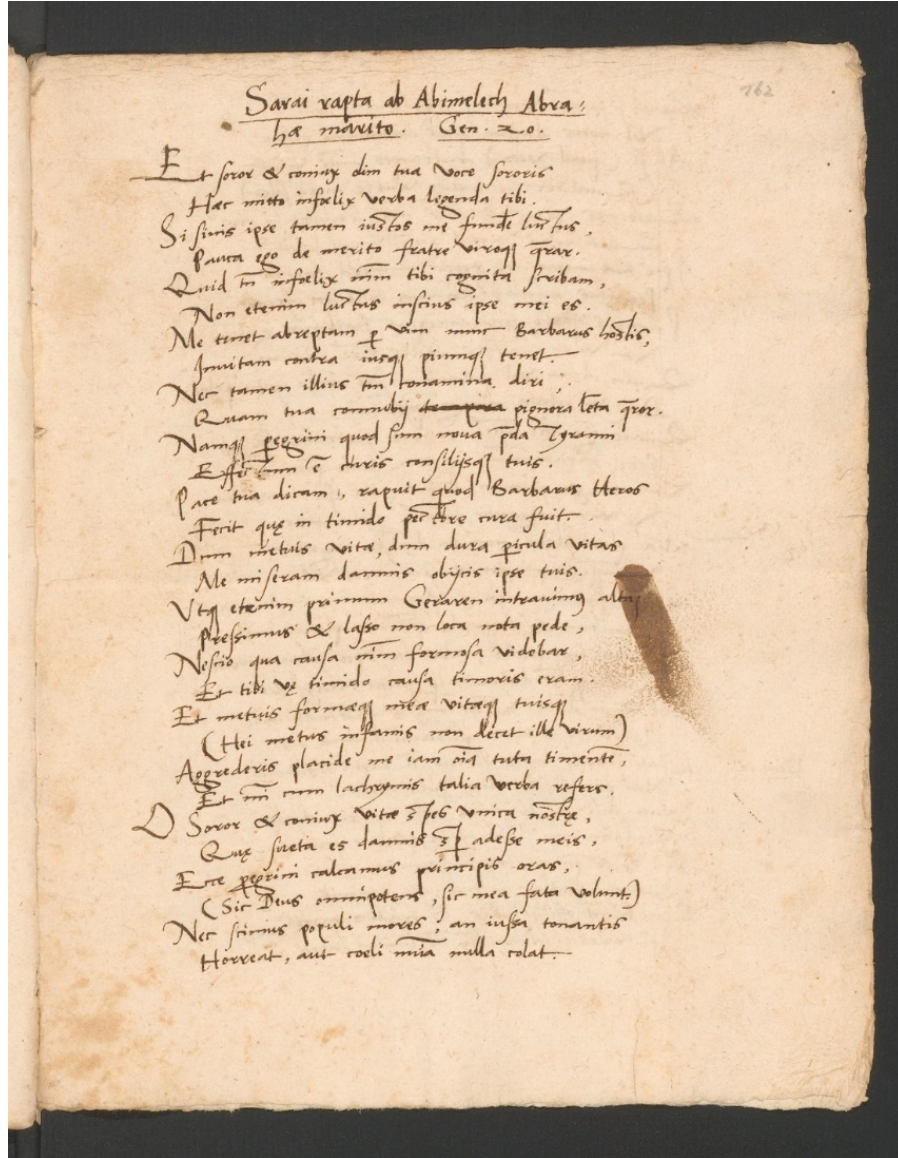 162
Sarai rapta ab Abimelech Abra⸗
hæ marito. Gen. 20.
Et soror & coniux dim tua voce sororis
Hæc mitto infœlix verba legenda tibi.
Si sinis ipse tamen iustos me fundẽ luctus,
Pauca ego de merito fratre viroqꝫ q̃rar.
Quid tñ infœlix nim̃ tibi cognita scribam,
Non etenim luctus inscius ipse mei es.
Me tenet abreptam ꝑ vim nunc Barbarus hostis,
Inuitam contra iusqꝫ piumqꝫ tenet.
Nec tamen illius tm̃ conamina diri,
Quam tua connubij pignora l̃ta q̃ror.
Namqꝫ ꝑegrini quod sum noua p̃da Tyranni
Effectum ẽ curis consilijsqꝫ tuis.
Pace tua dicam, rapuit quod Barbarus Heros
Fecit quę in timido pectore cura fuit.
Dum metuis vitæ, dum dura ꝑicula vitas
Me miseram damnis obijcis ipse tuis.
Vtqꝫ etenim primum Geraren intrauimus
Pressimus & lasso non loca nota pede,
Nescio qua causa nim̃ formosa videbar,
Et tibi vę timido causa timoris eram.
Et metuis formæqꝫ meæ vitæqꝫ tuisqꝫ
(Hei metus infamis non decet ille virum)
Aggrederis placide me iam oĩa tuta timentẽ,
Et m̃ cum lachrymis talia verba refers.
O Soror & coniux vitæ spes vnica nostrę,
Quę sueta es damnis sꝑ adesse meis,
Ecce ꝑegrini calcamus principis oras,
(Sic Deus omnipotens, sic mea fata volunt.)
Nec scimus populi mores, an iussa tonantis
Horreat, aut coeli nuĩa nulla colat.